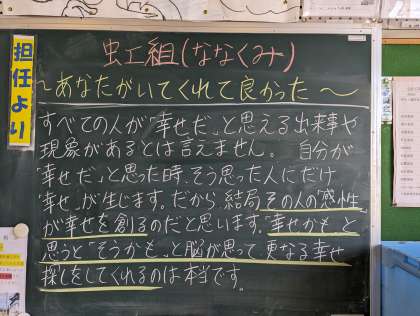 担任より
虹組(ななくみ)
〜あなたがいてくれて良かった〜
すべての人が「幸せだ」と思える出来事や
現象があるとは言えません。自分が
「幸せだ」と思った時、そう思った人にだけ
「幸せ」が生じます。だから、結局その人の「感性」
が幸せを創るのだと思います。「幸せかも」と
思うと「そうかも」と脳が思って更なる幸せ
探しをしてくれるのは本当です。